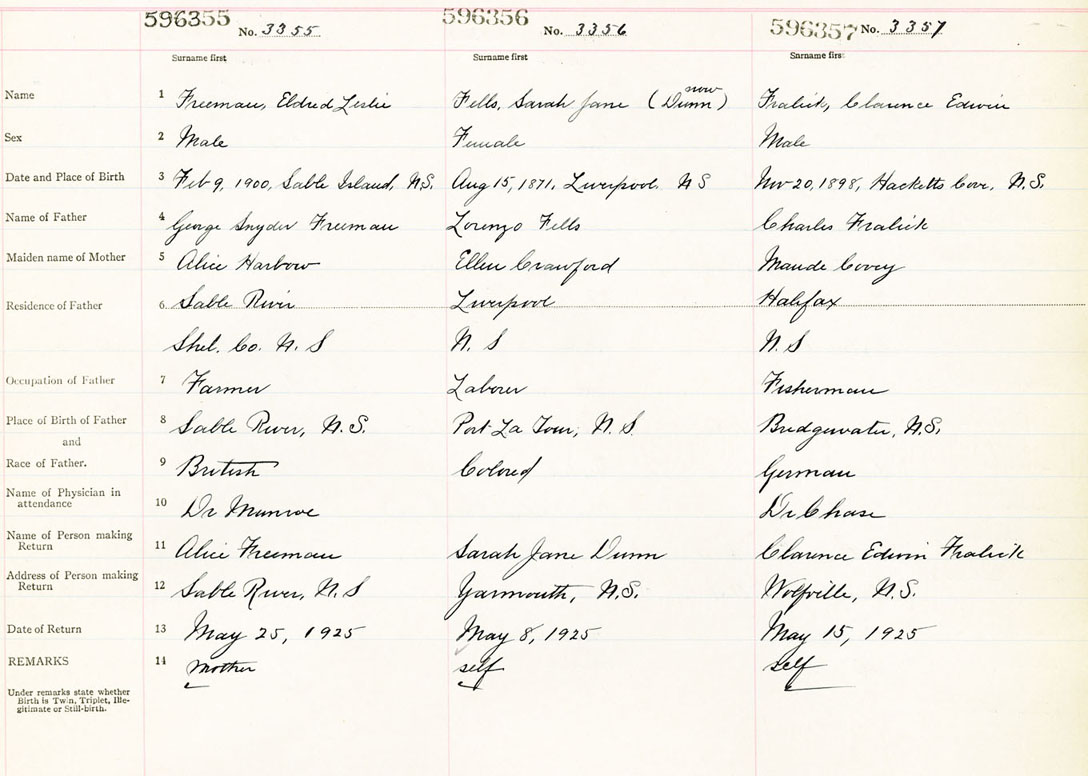 596355 No. 3355 596356 No. 3356 596357 No. 3357
Surname first Surname first Surname first
Name 1 Freeman, Eldred Leslie Fells, Sarah Jane (now Dunn) Fralick, Clarence Edwin
Sex 2 Male Female Male
Date and Place of Birth 3 Feb 9, 1900, Sable Island, N.S. Aug 15, 1871, Liverpool, N S Nov 20, 1898, Hacketts Cove, N.S.
Name of Father 4 George Snyder Freeman Lorenzo Fells Charles Fralick
Maiden name of Mother 5 Alice Harbow Ellen Crawford Maude Covey
Residence of Father 6 Sable River Liverpool Halifax
Shel. Co. N. S N. S N. S
Occupation of Father 7 Farmer Laborer Fisherman
Place of Birth of Father 8 Sable River, N.S. Port La Tour, N. S. Bridgewater, N.S.
and
Race of Father. 9 British Colored German
Name of Physician in
attendance 10 Dr Munroe Dr Chase
Name of Person making
Return 11 Alice Freeman Sarah Jane Dunn Clarence Edwin Fralick
Address of Person making
Return 12 Sable River, N.S Yarmouth, N.S. Wolfville, N.S.
Date of Return 13 May 25, 1925 May 8, 1925 May 15, 1925
REMARKS 14 mother self self
Under remarks state whether
Birth is Twin, Triplet, Ille-
gitimate or Still-birth.